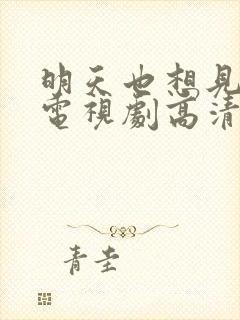 明天也想見
電視劇高清
青圭